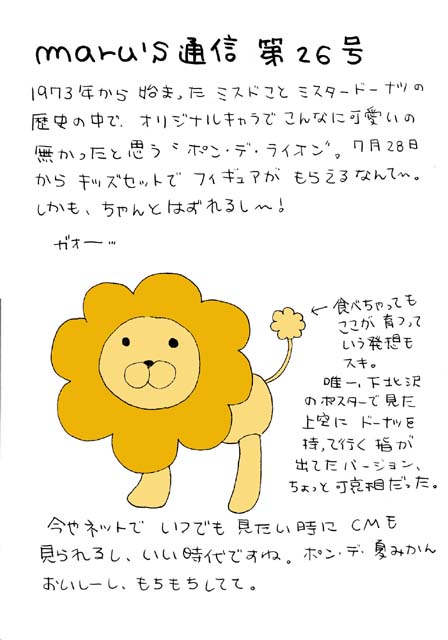 maru's通信 第26号
1973年から 始まった ミスドこと ミスタードーナツの
歴史の中で、オリジナルキャラで こんなに可愛いの
無かったと思う “ポン・デ・ライオン”。7月28日
から キッズセットで フィギュアが もらえるなんて〜。
しかも、ちゃんと はずれるし〜!
ガオー…
← 食べちゃっても
ここが 育つって
いう発想も
スキ。
唯一、下北沢
のポスターで見た
上空に ドーナツを
持って行く 指が
出てたバージョン、
ちょっと可哀相だった。
今やネットで いつでも 見たい時に CMも
見られるし、いい時代ですね。ポン・デ・夏みかん
おいしーし、もちもちしてて。